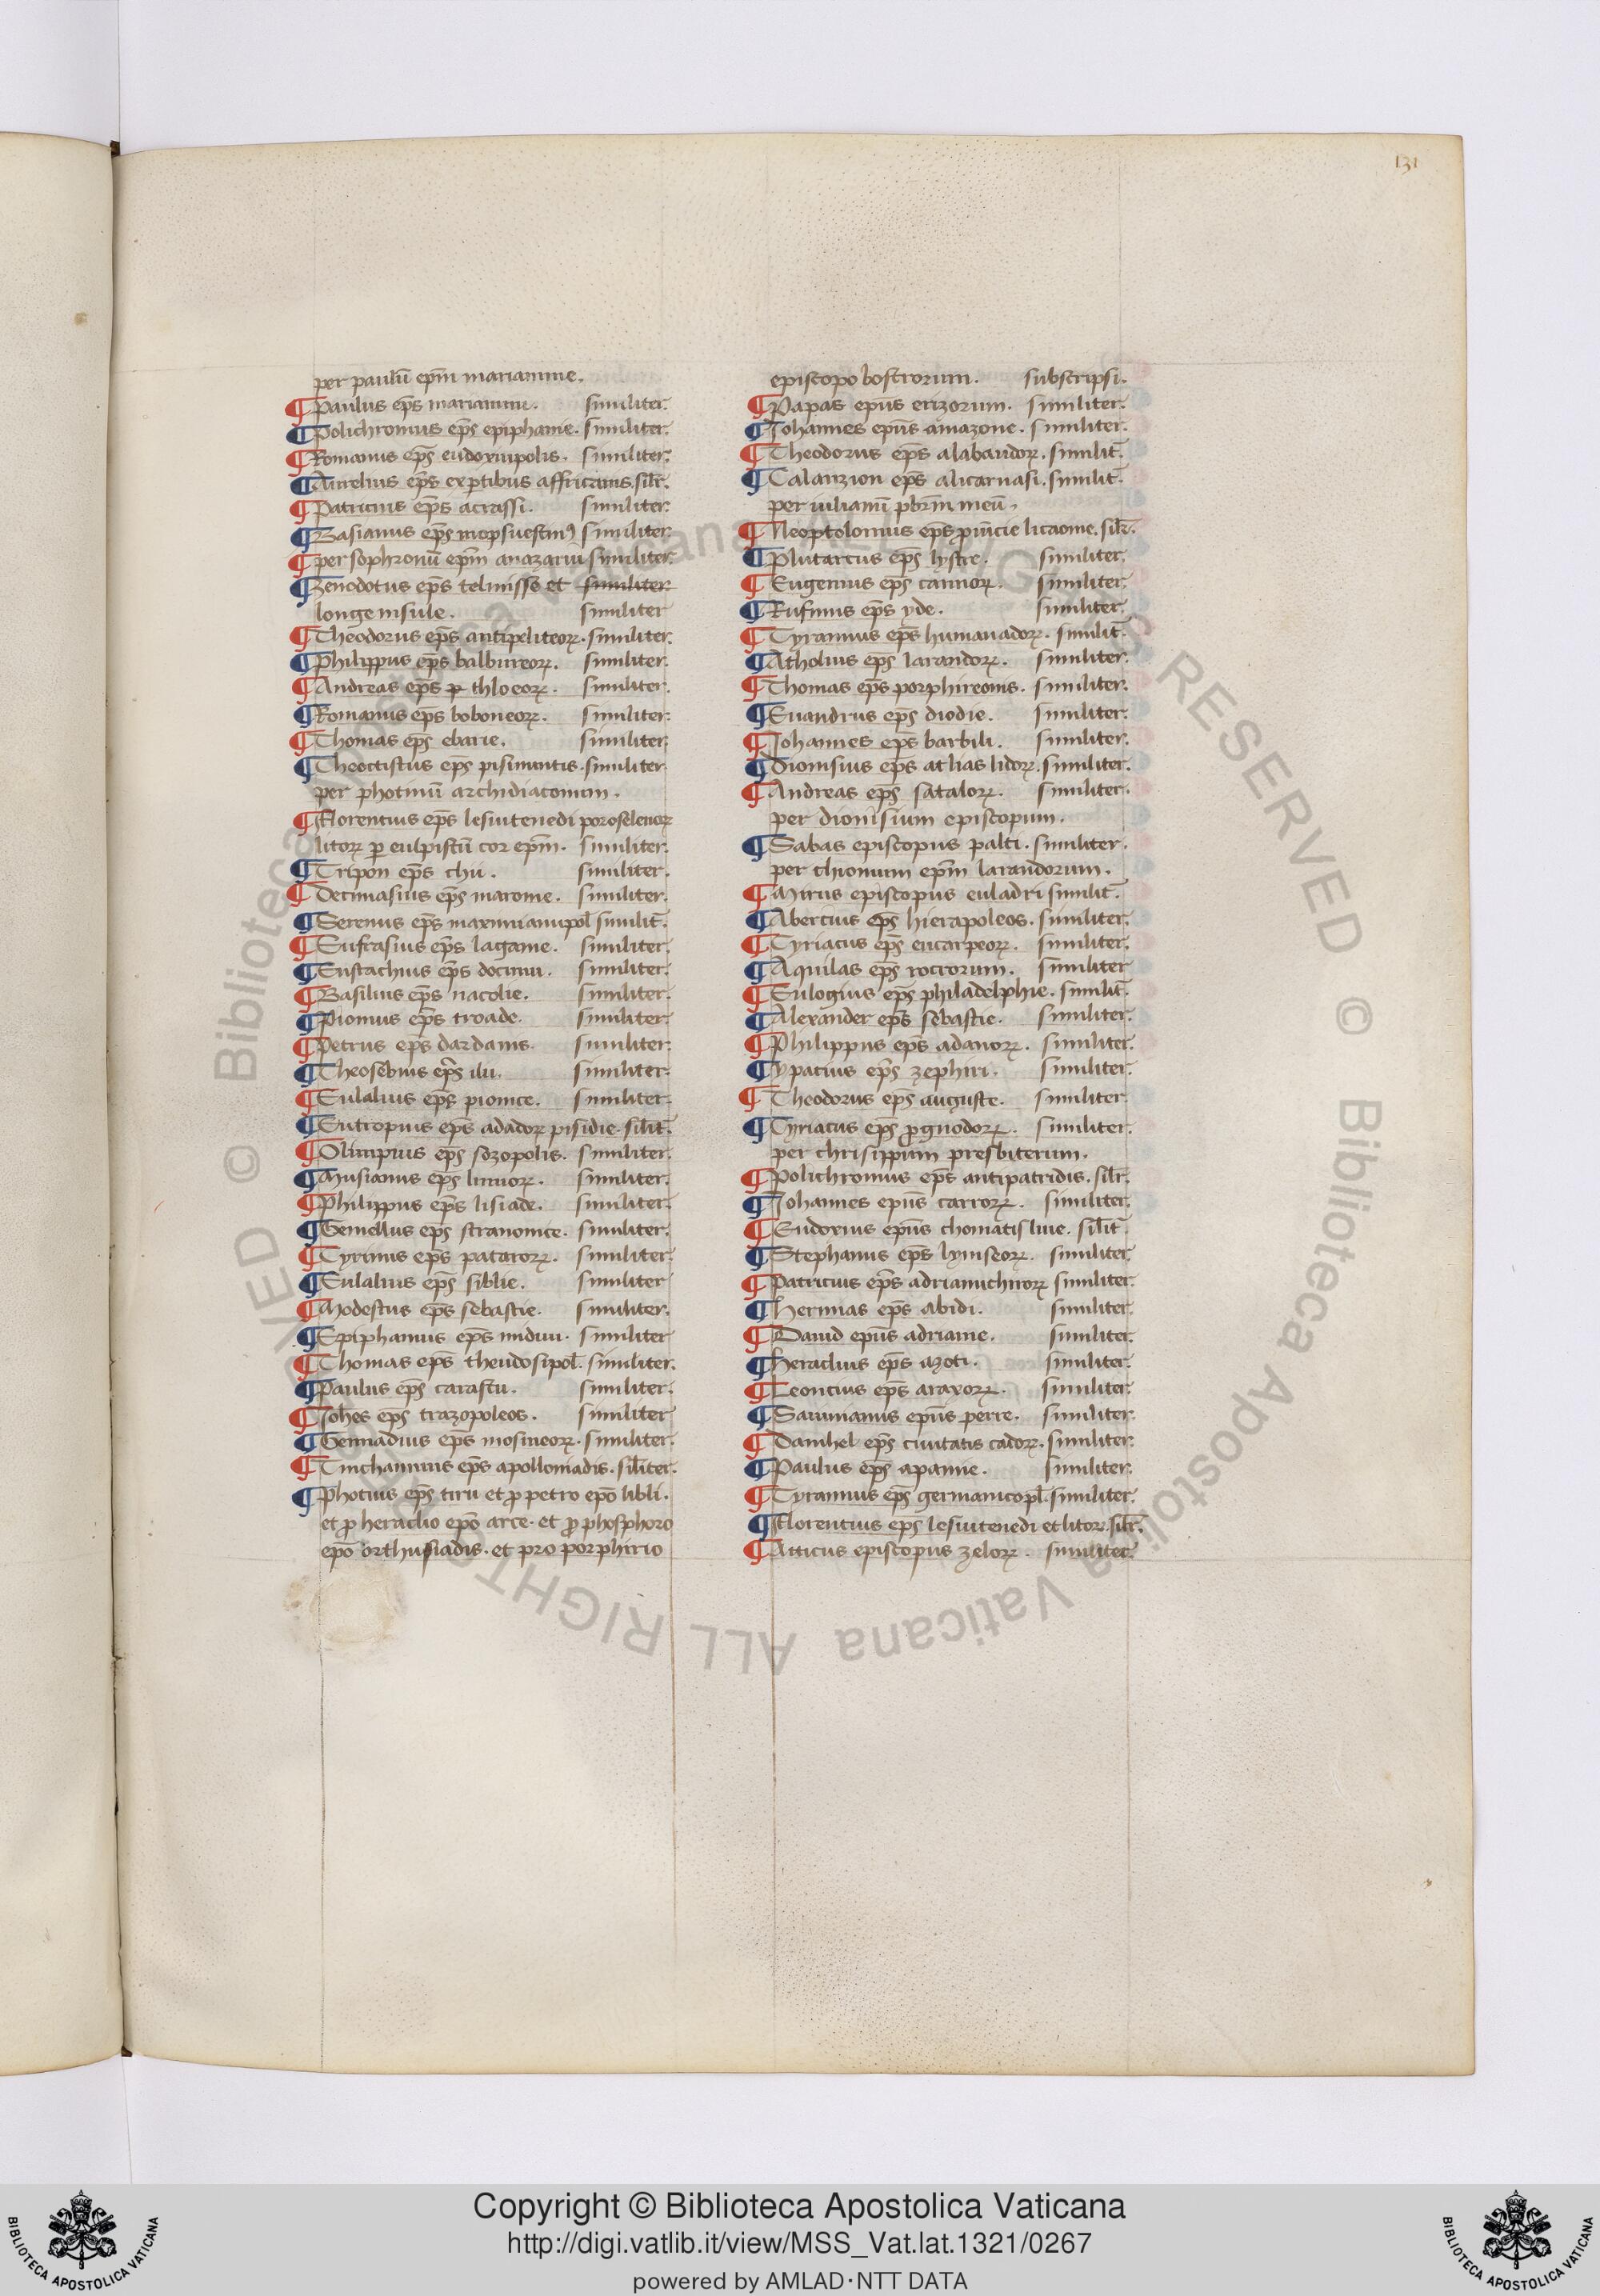 131
per paulū ep̄m mariamme.
¶ Paulus ep̄s mariamni. similiter.
¶ Polichronius ep̄s epiphanie. similiter.
¶ Romanus ep̄s eudoxiupolis. similiter.
¶ Aurelius ep̄s ex ptibus affricanis. silr̄.
¶ Patricius ep̄s acrassi. similiter.
¶ Basianus ep̄s mopsuestinꝰ similiter.
¶ per sophroniū ep̄m anazariu similiter.
¶ Zenodotus ep̄s telmisse et similiter
longe insule. similiter
¶ Theodorus ep̄s antipeliteoꝝ. similiter.
¶ Philippus ep̄s balbureoꝝ. similiter.
¶ Andreas ep̄s thloeoꝝ. similiter.
¶ Romanus ep̄s boboneoꝝ. similiter.
¶ Thomas ep̄s ebarie. similiter.
¶ Theoctistus eps pisinuntis. similiter
per photinū archidiaconum.
¶ Florentius ep̄s lesiutenedi poroselenoꝝ
litoꝝ ꝑ eulpistū cor ep̄m. similiter.
¶ Tripon ep̄s chii. similiter.
¶ Decimasius ep̄s marome. similiter.
¶ Serenus ep̄s maximianupol̄ similit̄.
¶ Eufrasius ep̄s lagame. similiter.
¶ Eustachius ep̄s docimii. similiter.
¶ Basilius ep̄s nacolie. similiter.
¶ Pionius ep̄s troade. similiter.
¶ Petrus ep̄s dardanis. similiter.
¶ Theosebius ep̄s ilii. similiter.
¶ Eulalius ep̄s pionice. similiter.
¶ Eutropius ep̄s adadoꝝ pisidie. silit̄.
¶ Olimpius ep̄s sozopolis. similiter.
¶ Musianus ep̄s liniuoꝝ. similiter.
¶ Philippus ep̄s lisiade. similiter.
¶ Gemellus ep̄s stranonice. similiter.
¶ Cyrinus ep̄s pataroꝝ. similiter.
¶ Eulalius ep̄s siblie. similiter
¶ Modestus ep̄s sebastie. similiter.
¶ Epiphanius ep̄s midiui. similiter
¶ Thomas ep̄s theudosipol̄. similiter.
¶ Paulus ep̄s carastu. similiter.
¶ Joh̄es ep̄s trazopoleos. similiter
¶ Gennadius ep̄s mosineoꝝ. similiter.
¶ Tinchamius ep̄s apolloniadis. sil̄iter.
¶ Photius ep̄s tirii et ꝓ petro ep̄o libli.
et ꝓ heraclio ep̄o arce. et ꝓ phosphoro
ep̄o orthusiadis. et pro porphirio
episcopo bostrorum. subscripsi.
¶ Papas epūs erizorum. similiter.
¶ Johannes epūs amazone. similiter.
¶ Theodorus ep̄s alabandoꝝ. similit̄.
¶ Calanzion ep̄s alicarnasi. similit̄.
per iulianū pb̄rm meū.
¶ Neoptolomus ep̄s ꝓuīcie licaonie. silr̄.
¶ Plutarcus ep̄s lystre. similiter.
¶ Eugenius ep̄s cannoꝝ. similiter.
¶ Rufinus ep̄s yde. similiter.
¶ Tyrannus ep̄s humanadoꝝ. similit̄.
¶ Atholius ep̄s larandoꝝ. similiter.
¶ Thomas ep̄s porphireonis. similiter.
¶ Euandrus ep̄s diodie. similiter.
¶ Johannes eps barbili. similiter.
¶ Dionisius ep̄s athas lidoꝝ. similiter.
¶ Andreas ep̄s sataloꝝ. similiter.
per dionisium episcopum.
¶ Sabas episcopus palti. similiter.
per thionum ep̄m larandorum.
¶ Mirus episcopus euladri similit̄
¶ Abercius ep̄s hierapoleos. similiter.
¶ Cyriacus ep̄s eucarpeoꝝ. similiter.
¶ Aquilas ep̄s roctorum. similiter
¶ Eulogius ep̄s philadelphie. similit̄.
¶ Alexander ep̄s sebastie. similiter.
¶ Philippus ep̄s adanoꝝ. similiter.
¶ Ypatius ep̄s zephiri. similiter.
¶ Theodorus ep̄s auguste. similiter
¶ Cyriacus ep̄s ꝓgnodoꝝ. similiter.
per chrisippum presbiterum.
¶ Polichromus ep̄s antipatridis. silr̄.
¶ Johannes epūs carroꝝ. similiter.
¶ Eudoxius epūs chomatisluie. sil̄it̄.
¶ Stephanus ep̄s lymseoꝝ. similiter
¶ Patricius ep̄s adrianichiroꝝ similiter
¶ Hermias ep̄s abidi. similiter
¶ Dauid epūs adriane. similiter.
¶ Heraclius ep̄s azoti. similiter
¶ Leoncius ep̄s araxoꝝ. similiter.
¶ Saturnianus epūs perre. similiter.
¶ Danihel ep̄s ciuitatis cadoꝝ. similiter.
¶ Paulus ep̄s apanie. similiter.
¶ Tyrannus ep̄s germanicopl̄. similiter.
¶ Florentius ep̄s lesiutenedi et litoꝝ. silr̄.
¶ Atticus episcopus zeloꝝ. similiter.
Copyright © Biblioteca Apostolica Vaticana
http://digi.vatlib.it/view/MSS_Vat.lat.1321/0267
powered by AMLAD·NTT DATA
BIBLIOTECA APOSTOLICA VATICANA
BIBLIOTECA APOSTOLICA VATICANA